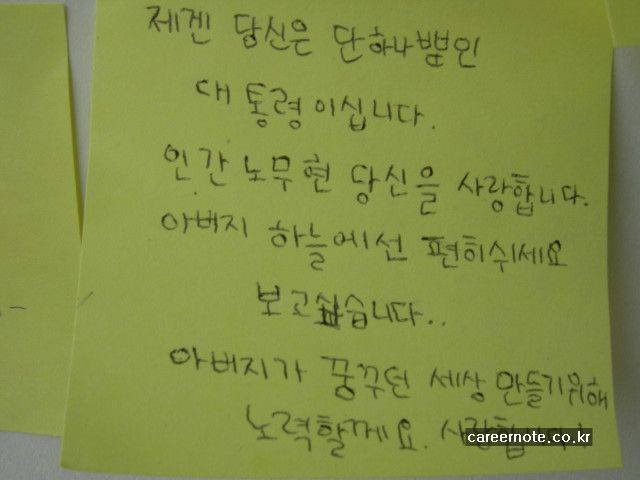 제겐 당신은 단하나뿐인
대통령이십니다.
인간노무현 당신을 사랑합니다.
아버지 하늘에선 편히쉬세요
보고싶습니다..
아버지가 꿈꾸던 세상 만들기위해
노력할께요. 사랑합니다!
careernote.co.kr